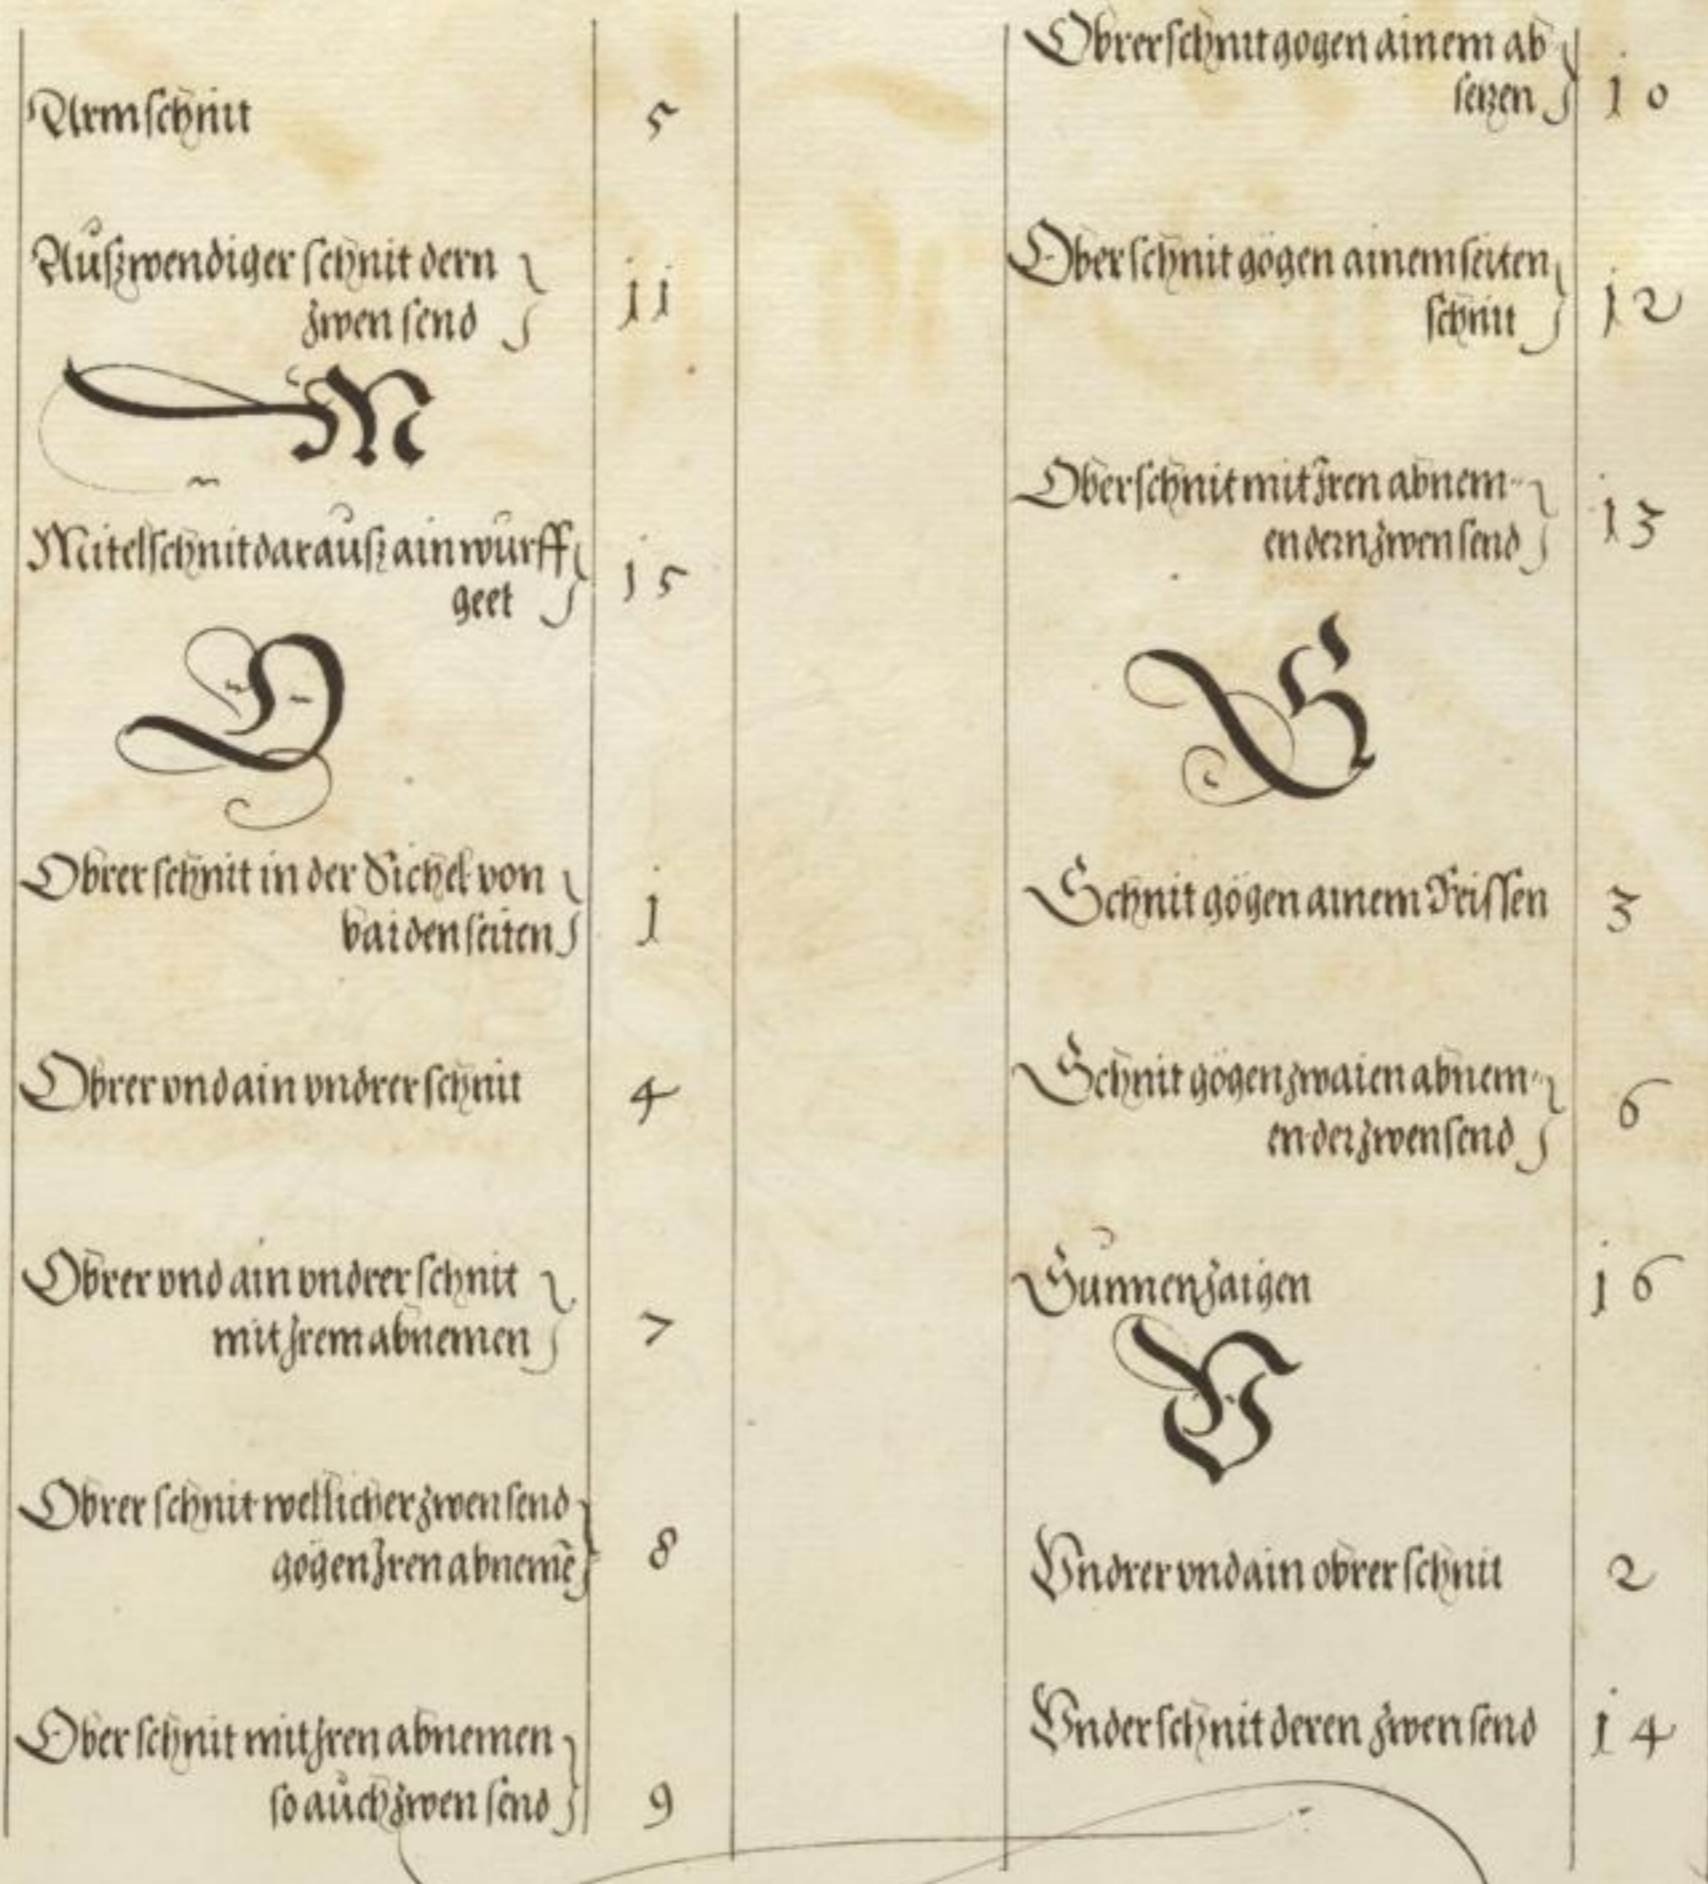 Armschnit 5
Außwendiger schnit dern
zwen send 11
M
Mitelschnit darauß ain wurff
geet 15
O
Obrer schnit in der Sichel von
baiden seiten 1
Obrer vnd ain vndrer schnit 4
Obrer vnd ain vndrer schnit
mit Irem abnemen 7
Obrer schnit wellicher zwen send
gögen Iren abnemē 8
Ober schnit mit Iren abnemen
so auch zwen send 9
Obrer schnit gogen ainem ab
setzen 10
Ober schnit gögen ainem seiten
schnit 12
Ober schnit mit Iren abnem-
en dern zwen send 13
S
Schnit gögen ainem 3
Schnit gögen zwaien abnem-
en der zwen send 6
Sunnenzaigen 16
V
Vndrer vnd ain obrer schnit 2
Vnder schnit deren zwen send 14